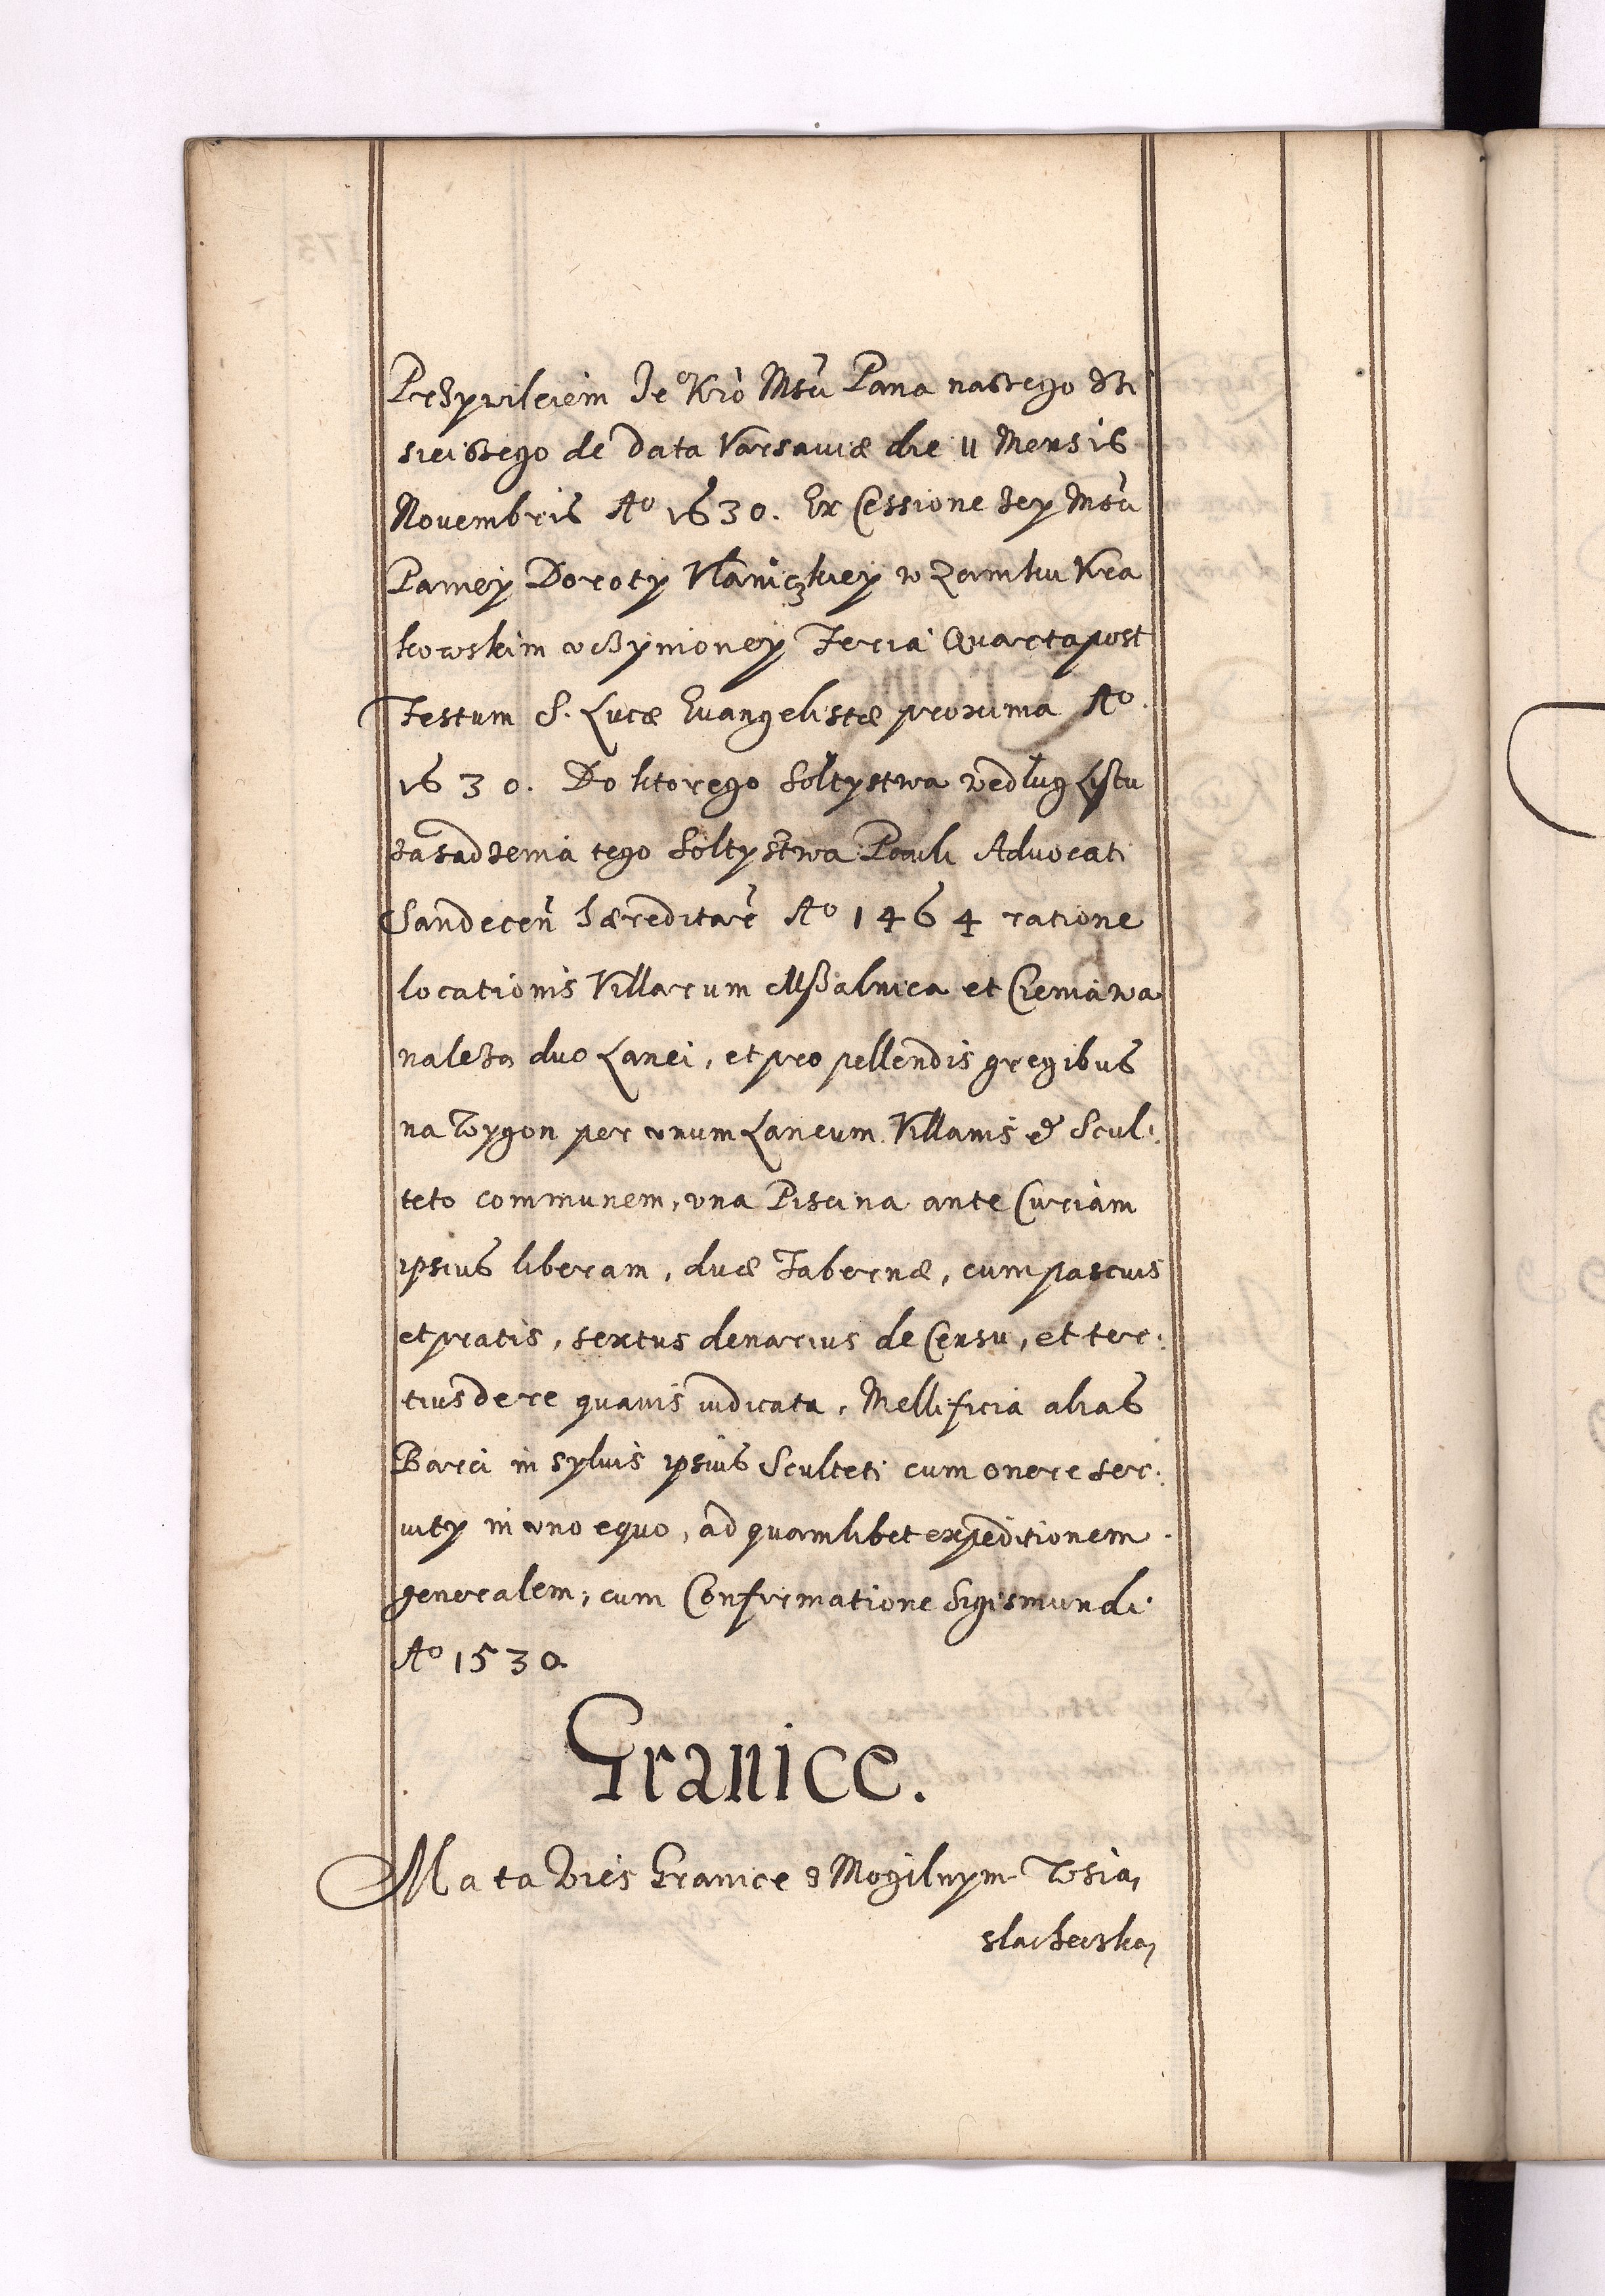 Przywileiem Je° Kró Mśći Pana naszego dzi
sieiszego de data Varsauiæ die 11 Mensis
Novembris A° 1630. Ex Cessione Jey Mśći
Paniey Doroty Vłaniczkiey w Zamku Kra
kowskim vczynioney Feria Quarta post
Festum S. Lucæ Euangelistæ proxima A°.
1630. Do ktorego Sołtystwa według Listu
zasadzenia tego Sołtystwa Pauli Advocati
Sandecen̄ hæreditar̄ A° 1464 ratione
locationis Villarum Mszalnica et Cieniawa
należą duo Lanei, et pro pellendis gregibus
na Wygon per vnum Laneum Villanis & Scul:
teto communem, vna Piscina ante Curiam
ipsius liberam, duæ Tabernæ, cum pascuis
et pratis, sextus denarius de Censu, et ter:
tius de re quauis iudicata, Mellificia alias
Barci in syluis ipsius Sculteti cum onere ser:
uity in vno equo, ad quamlibet expeditionem
generalem; cum Confirmatione Sigismundi
A° 1530.
Granice.
Ma ta Wieś Granice z Mogilnym Wsią
slachecką,